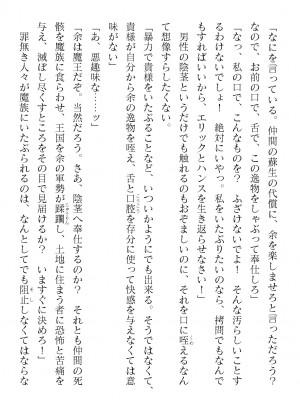 「なにを言っている。仲間の蘇生の代償に、余を楽しませろと言っただろう？
なので、お前の口で、舌で、この逸物をしゃぶって奉仕しろ」
「なっ、私の口で、こんなものを？　ふざけないでよ！　そんな汚らしいことす
るわけないでしょ！　絶対にいやっ。私をいたぶりたいのなら、拷問でもなんで
もすればいいから、エリックとハンスを生き返らせなさい！」
　男性の陰茎というだけでも触れるのもおぞましいのに、それを口に咥えるなん
て想像すらしたくない。
「暴力で貴様をいたぶることなど、いついかようにでも出来る。そうではなくて、
貴様が自分から余の逸物を咥え、舌と口腔を存分に使って快感を与えなくては意
味がない」
「あ、悪趣味な……ッ」
「余は魔王だぞ。当然だろう。さあ、陰茎へ奉仕するのか？　それとも仲間の死
骸を魔族に食らわせ、王国を余の軍勢が蹂躙し、土地に住まう者に恐怖と苦痛を
与え、滅ぼし尽くすところをその目で見届けるか？　いますぐに決めろ！」
　罪無き人々が魔族にいたぶられるのは、なんとしてでも阻止しなくてはならな